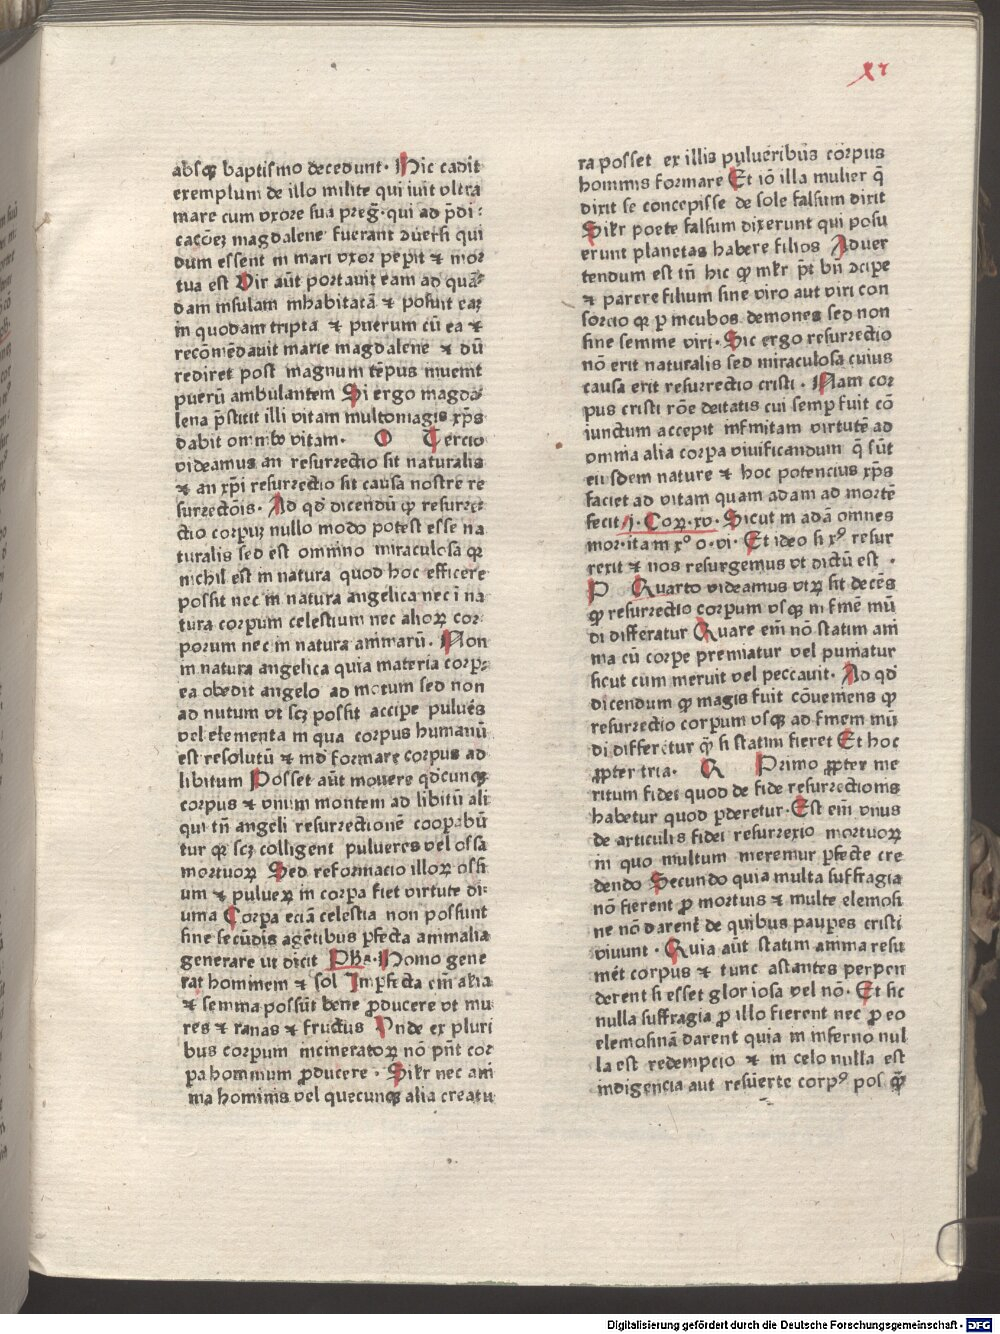 xv
absqꝫ baptismo decedunt· Hic cadit
exemplum de illo milite qui iuit vltra
mare cum vxore sua preg̃·qui ad p̃di⸗
cac̃oeꝫ magdalene fuerant ꝯuersi qui
dum essent in mari vxor peꝑit ⁊ mor
tua est Vir aũt portauit eam ad quã⸗
dam insulam inhabitatã ⁊ posuit eaꝫ
in quodam tripta ⁊ puerum cũ ea ⁊
recõmẽdauit marie magdalene ⁊ dũ
rediret post magnum tẽpus inuenit
puerũ ambulantem Si ergo magda⸗
lena p̃stitit illi vitam multomagis xp̃s
dabit omnibꝰ vitam· O Tercio
videamus an resurrectio sit naturalis
⁊ an xp̃i resurrectio sit causa nostre re
surrectõis· Ad qđ dicendũ ꝙ resurre⸗
ctio corpuꝫ nullo modo potest esse na
turalis sed est omnino miraculosa qꝛ
nichil est in natura quod hoc efficere
possit nec in natura angelica nec ĩ na
tura corꝑum celestium nec alioꝝ cor
porum nec in natura animarũ· Non
in natura angelica quia materia corꝑ⸗
ea obedit angelo ad motum sed non
ad nutum vt scꝫ possit acciꝑe pulũes
vel elementa in qua corpus humanũ
est resolutũ ⁊ inđ formare corpus ad
libitum Posset aũt mouere qđcunqꝫ
corpus ⁊ vnum montem ad libitũ ali
qui tñ angeli resurrectionẽ cooꝑabũ
tur qꝛ scꝫ colligent pulueres vel ossa
mortuoꝝ Sed reformacio illoꝝ ossi
um ⁊ pulueꝝ in corꝑa fiet virtute di⸗
uina Corꝑa eciã celestia non possunt
sine secũdis agẽtibus ꝑfecta animalia
generare ut dicit Phꝰ·Homo gene
rat hominem ⁊ sol Inꝑfecta eĩ alia
⁊ semina possũt bene ꝓducere vt mu
res ⁊ ranas ⁊ fructus Vnde ex pluri
bus corꝑum incineratoꝝ nõ pñt cor
ꝑa hominum ꝓducere · Silr nec ani
ma hominis vel quecunqꝫ alia creatu
ra posset ex illis pulueribus corpus
hominis formare Et iõ illa mulier q̃
dixit se concepisse de sole falsum dixit
Silr poete falsum dixerunt qui posu
erunt planetas habere filios Aduer
tendum est tñ hic ꝙ mlr p̃t bñ ꝯciꝑe
⁊ parere filium sine viro aut viri con
sorcio qꝛ ꝑ incubos demones sed non
sine semine viri· Sic ergo resurrectio
nõ erit naturalis sed miraculosa cuius
causa erit resurrectio cristi · Nam cor
pus cristi rõe deitatis cui semꝑ fuit cõ
iunctum accepit infinitam virtutẽ ad
omnia alia corꝑa viuificandum q̃ sũt
eiusdem nature ⁊ hoc potencius xp̃s
faciet ad vitam quam adam ad mortẽ
fecit j· Coꝝ·xv· Sicut in adã omnes
mor·ita in xº o·vi· Et ideo si xº resur
rexit ⁊ nos resurgemus vt dictũ est ·
P Quarto videamus vtꝝ sit decẽs
ꝙ resurrectio corꝑum vsqꝫ in finẽ mũ
di differatur Quare eĩ nõ statim ani
ma cũ corꝑe premiatur vel punitur
sicut cum meruit vel peccauit· Ad qđ
dicendum ꝙ magis fuit cõueniens ꝙ
resurrectio corꝑum vsqꝫ ad finem mũ
di differetur q̃ si statim fieret Et hoc
ꝓpter tria· Q Primo ꝓpter me
ritum fidei quod de fide resurrectionis
habetur quod ꝑderetur·Est eĩ vnus
de articulis fidei resurrexio mortuoꝝ
in quo multum meremur ꝑfecte cre
dendo Secundo quia multa suffragia
nõ fierent ꝓ mortuis ⁊ multe elemosi
ne nõ darent̃ de quibus pauꝑes cristi
viuunt · Quia aũt statim anima resu
mẽt corpus ⁊ tunc astantes perpen
derent si esset gloriosa vel nõ· Et sic
nulla suffragia ꝓ illo fierent nec ꝓ eo
elemosinã darent quia in inferno nul
la est redempcio ⁊ in celo nulla est
indigencia aut resũerte corpꝰ pos q̃